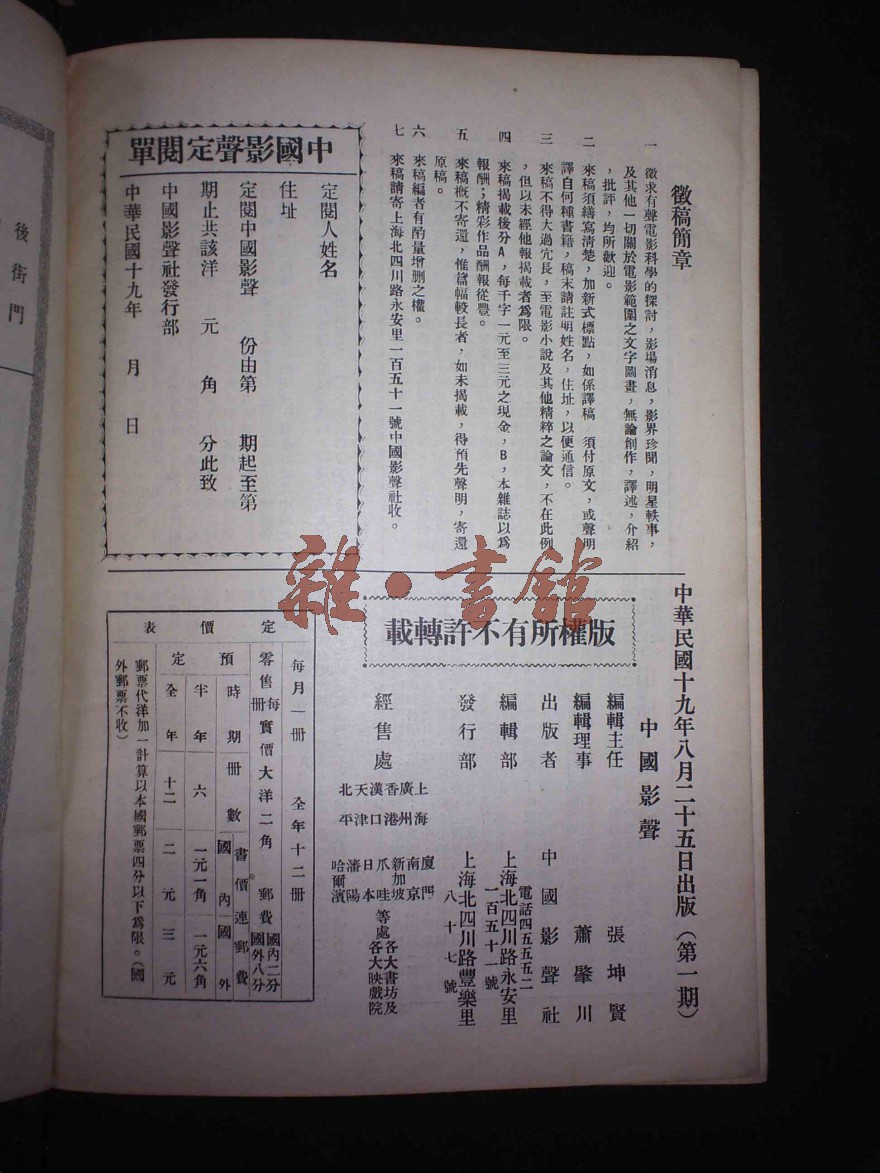 徵稿簡章
一　徵求有聲電影科學的探討，影場消息，影界珍聞，明星軼事，
及其他一切關於電影範圍之文字圖畫，無論創作，譯述，介紹
，批評，均所歡迎。
二　來稿須繕寫清楚，加新式標點，如係譯稿　須付原文，或聲明
譯自何種書籍，稿末請註明姓名，住址，以便通信。
三　來稿不得大過冗長，至電影小說及其他精粹之論文，不在此例
，但以未經他報揭載者爲限。
四　來稿揭載後分A，每千字一元至三元之現金，B，本雜誌以爲
報酬；精彩作品酬報從豐。
五　來稿概不寄還，惟篇幅較長者，如未揭載，得預先聲明，寄還
原稿。
六　來稿編者有酌量增删之權。
七　來稿請寄上海北四川路永安里一百五十一號中國影聲社收。
中國影聲定閱單
定閱人姓名
住址
定閱中國影聲　份由第　期起至第
期止共該洋　元　角　分此致
中國影聲社發行部
中華民國十九年　月　日
後街門
中華民國十九年八月二十五日出版（第一期）
中國影聲
編輯主任　張坤賢
編輯理事　蕭肇川
出版者　中國影聲社
編輯部　上海北四川路永安里
一百五十一號
電話四五五五二
發行部　上海北四川路豐樂里
八十七號
經售處
上海
廣州
香港
漢口
天津
北平
廈門
南京
新加坡
爪哇
日本
瀋陽
哈爾濱
等處各大書坊及
各大映戲院
版權所有不許轉載
定價表
每月一冊　全年十二冊
零售每冊實價大洋二角　郵費國內二分
國外八分
預定
時期　冊數　書價連郵費
國內　國外
半年　六　一元一角　一元六角
全年　十二　二元　三元
郵票代洋加一計算以本國郵票四分以下爲限。（國
外郵票不收）
雜·書館